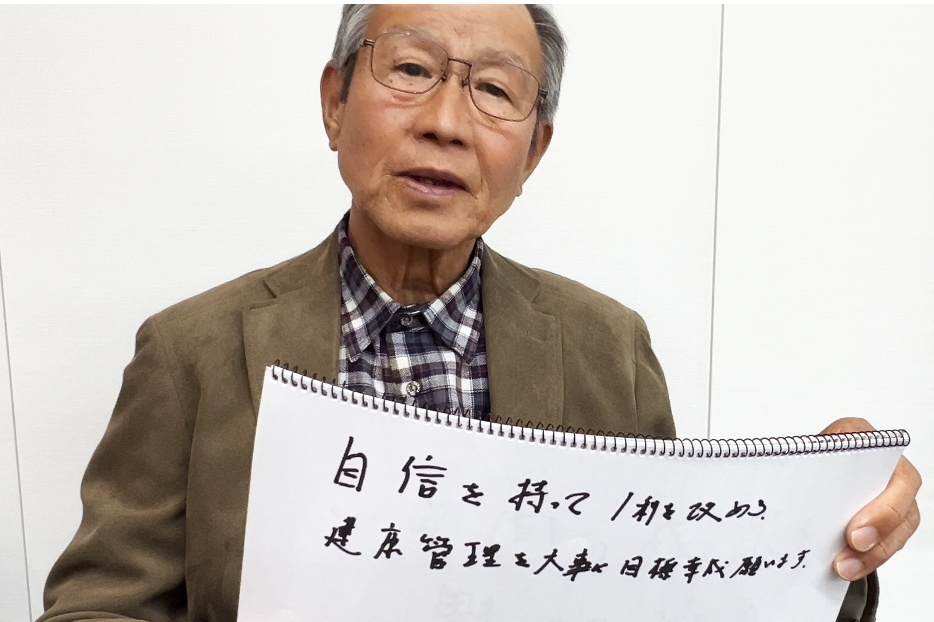 自信を持って1秒を攻める、
健康管理を大事に目標達成願います。